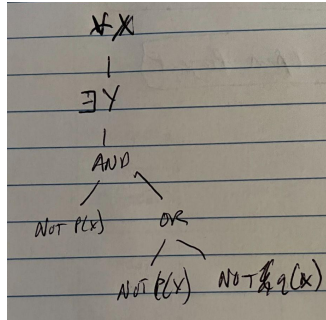 ∀X
∃Y
AND
NOT P(x) OR
NOT P(x) NOT q(x)